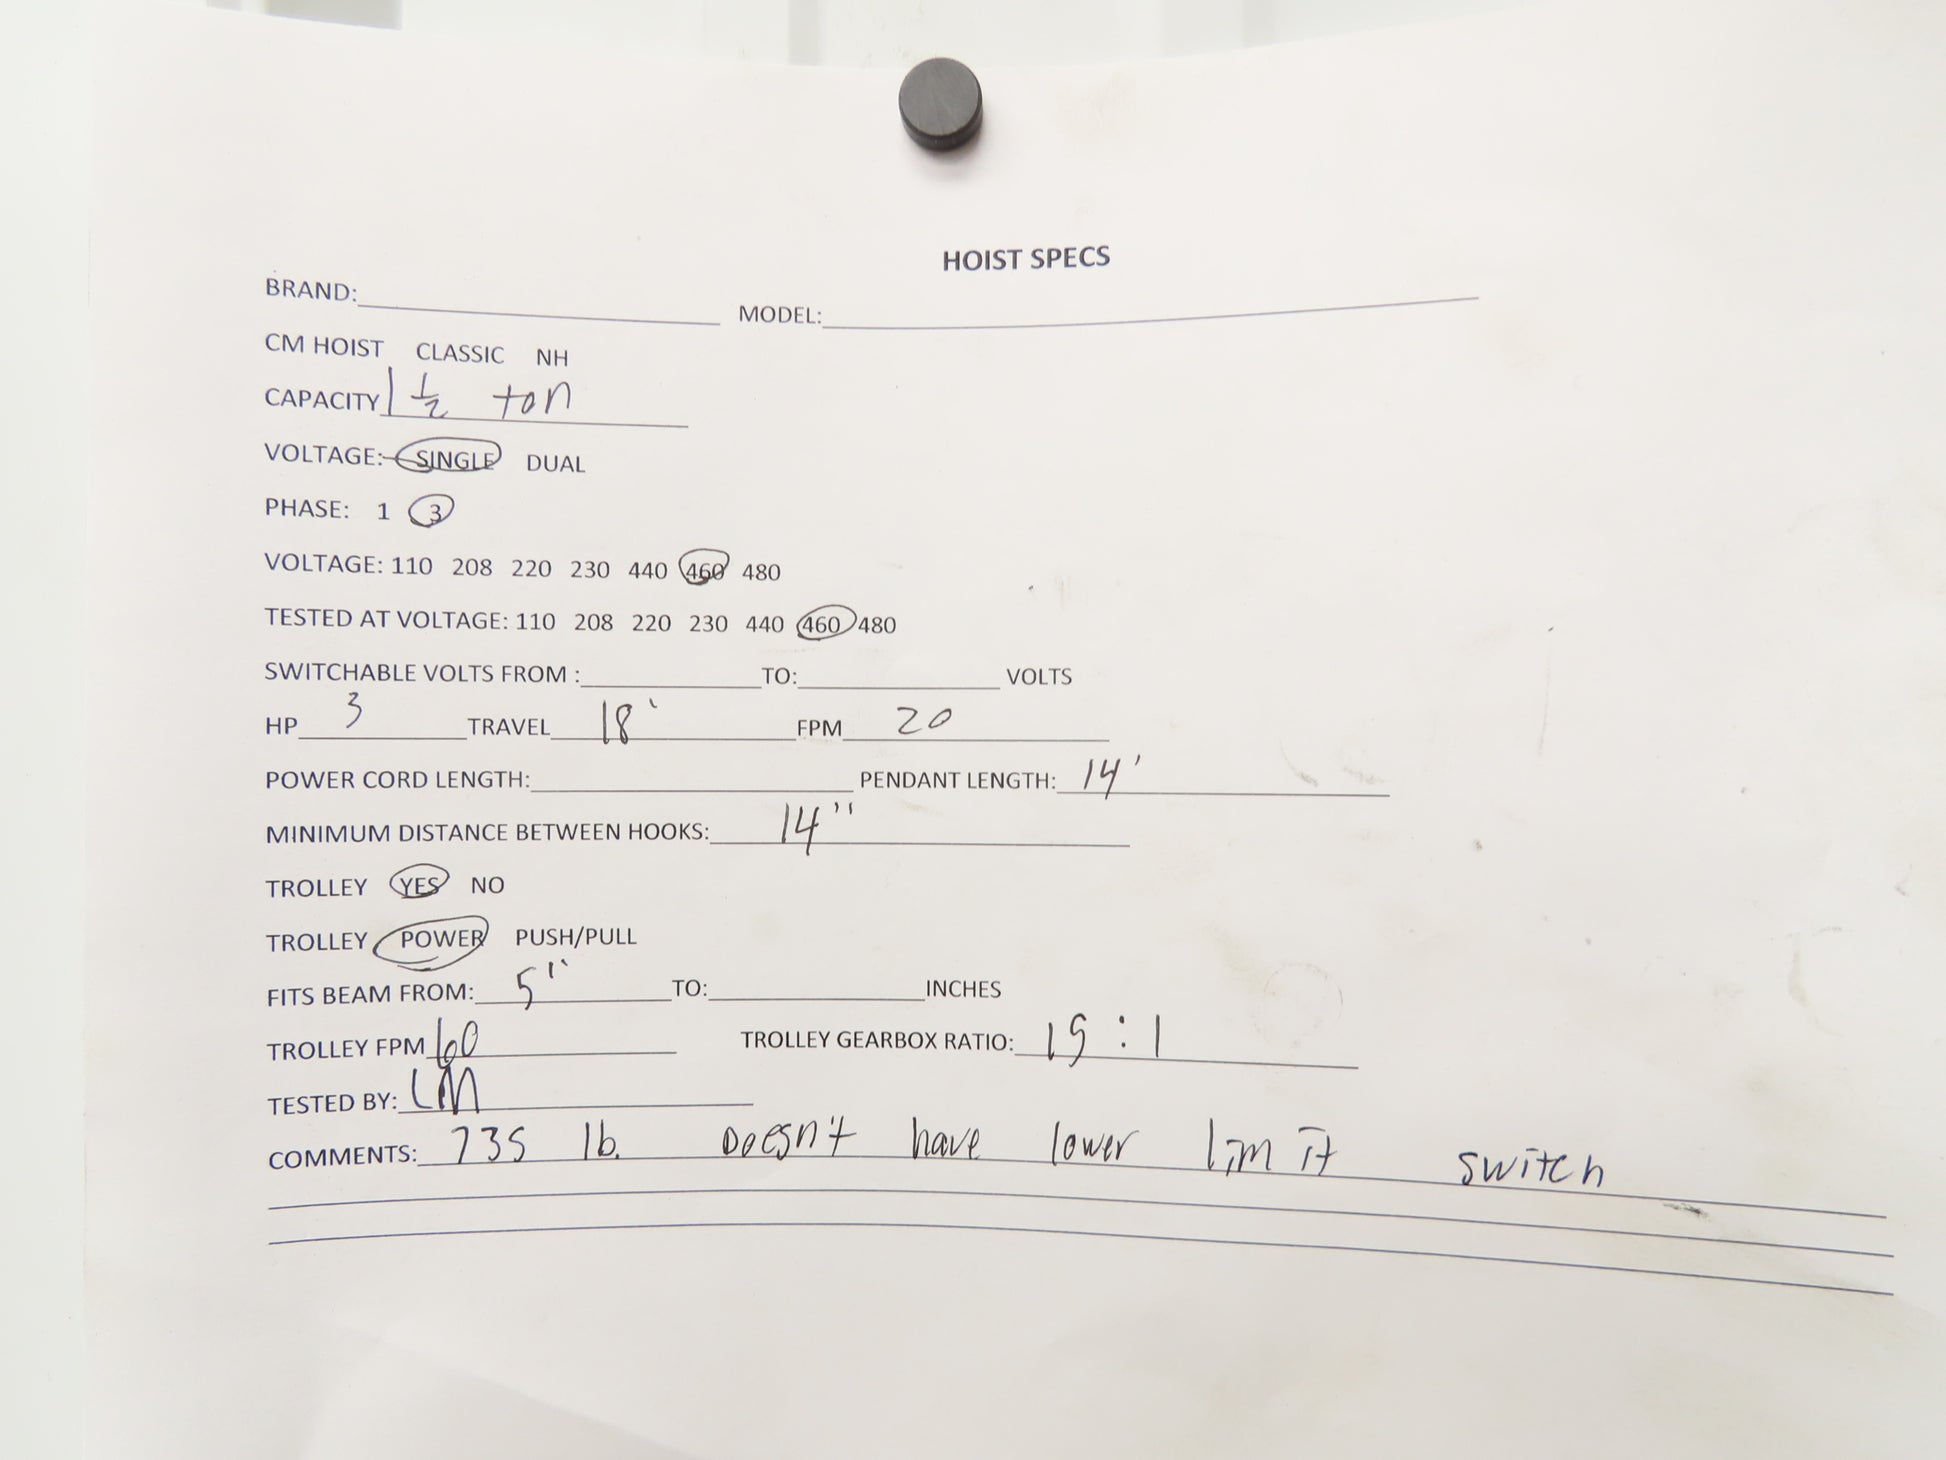 HOIST SPECS
BRAND: MODEL:
CM HOIST CLASSIC NH
CAPACITY 1 1/2 ton
VOLTAGE: SINGLE DUAL
PHASE: 1 3
VOLTAGE: 110 208 220 230 440 460 480
TESTED AT VOLTAGE: 110 208 220 230 440 460 480
SWITCHABLE VOLTS FROM : TO: VOLTS
HP 3 TRAVEL 18' FPM 20
POWER CORD LENGTH: PENDANT LENGTH: 14'
MINIMUM DISTANCE BETWEEN HOOKS: 14"
TROLLEY YES NO
TROLLEY POWER PUSH/PULL
FITS BEAM FROM: 5" TO: INCHES
TROLLEY FPM 60 TROLLEY GEARBOX RATIO: 15:1
TESTED BY: LM
COMMENTS: 735 lb. Doesn't have lower limit switch